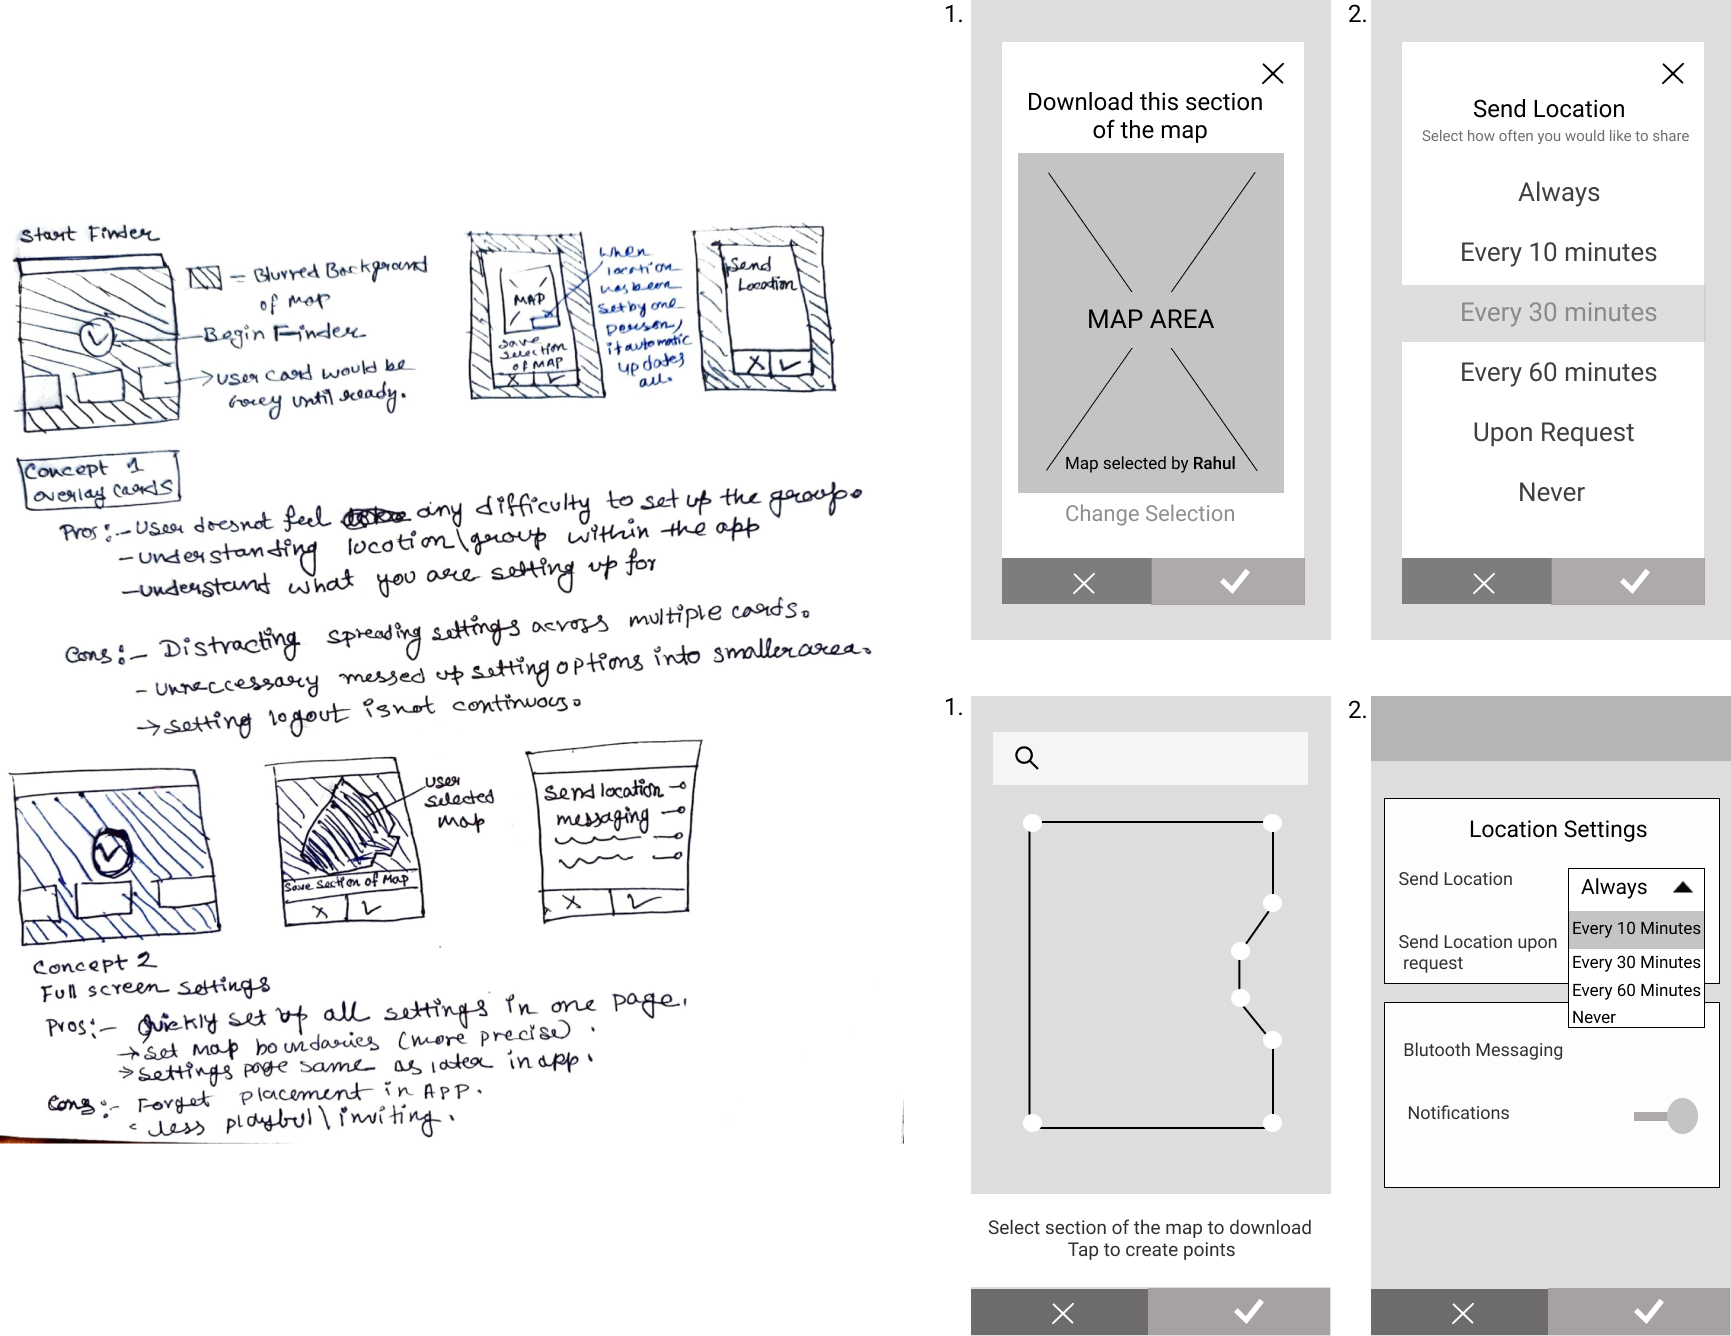 Start Finder
= Blurred Background
of map
Begin Finder
user card would be
Grey until ready.
MAP
save
selection
of MAP
X ✓
when
location
has been
set by one
person,
it automatic
updates
all.
Send
Location
X ✓
Concept 1
overlay cards
Pros:- User doesnot feel any difficulty to set up the group.
- understanding location\group within the app
- understand what you are setting up for
Cons:- Distracting spreading settings across multiple cards.
- unneccessary messed up setting options into smaller area.
→ setting logout is not continuous.
user
selected
map
Save Section of Map
X ✓
Send location
messaging
X ✓
Concept 2
Full screen settings
Pros:- Quickly set up all settings in one page.
→ Set map boundaries (more precise).
→ Settings page same as later in app.
Cons:- Forget placement in APP.
less playful\inviting.
1.
Download this section
of the map
MAP AREA
Map selected by Rahul
Change Selection
2.
Send Location
Select how often you would like to share
Always
Every 10 minutes
Every 30 minutes
Every 60 minutes
Upon Request
Never
1.
Select section of the map to download
Tap to create points
2.
Location Settings
Send Location
Always
Every 10 Minutes
Send Location upon
request
Every 30 Minutes
Every 60 Minutes
Never
Blutooth Messaging
Notifications